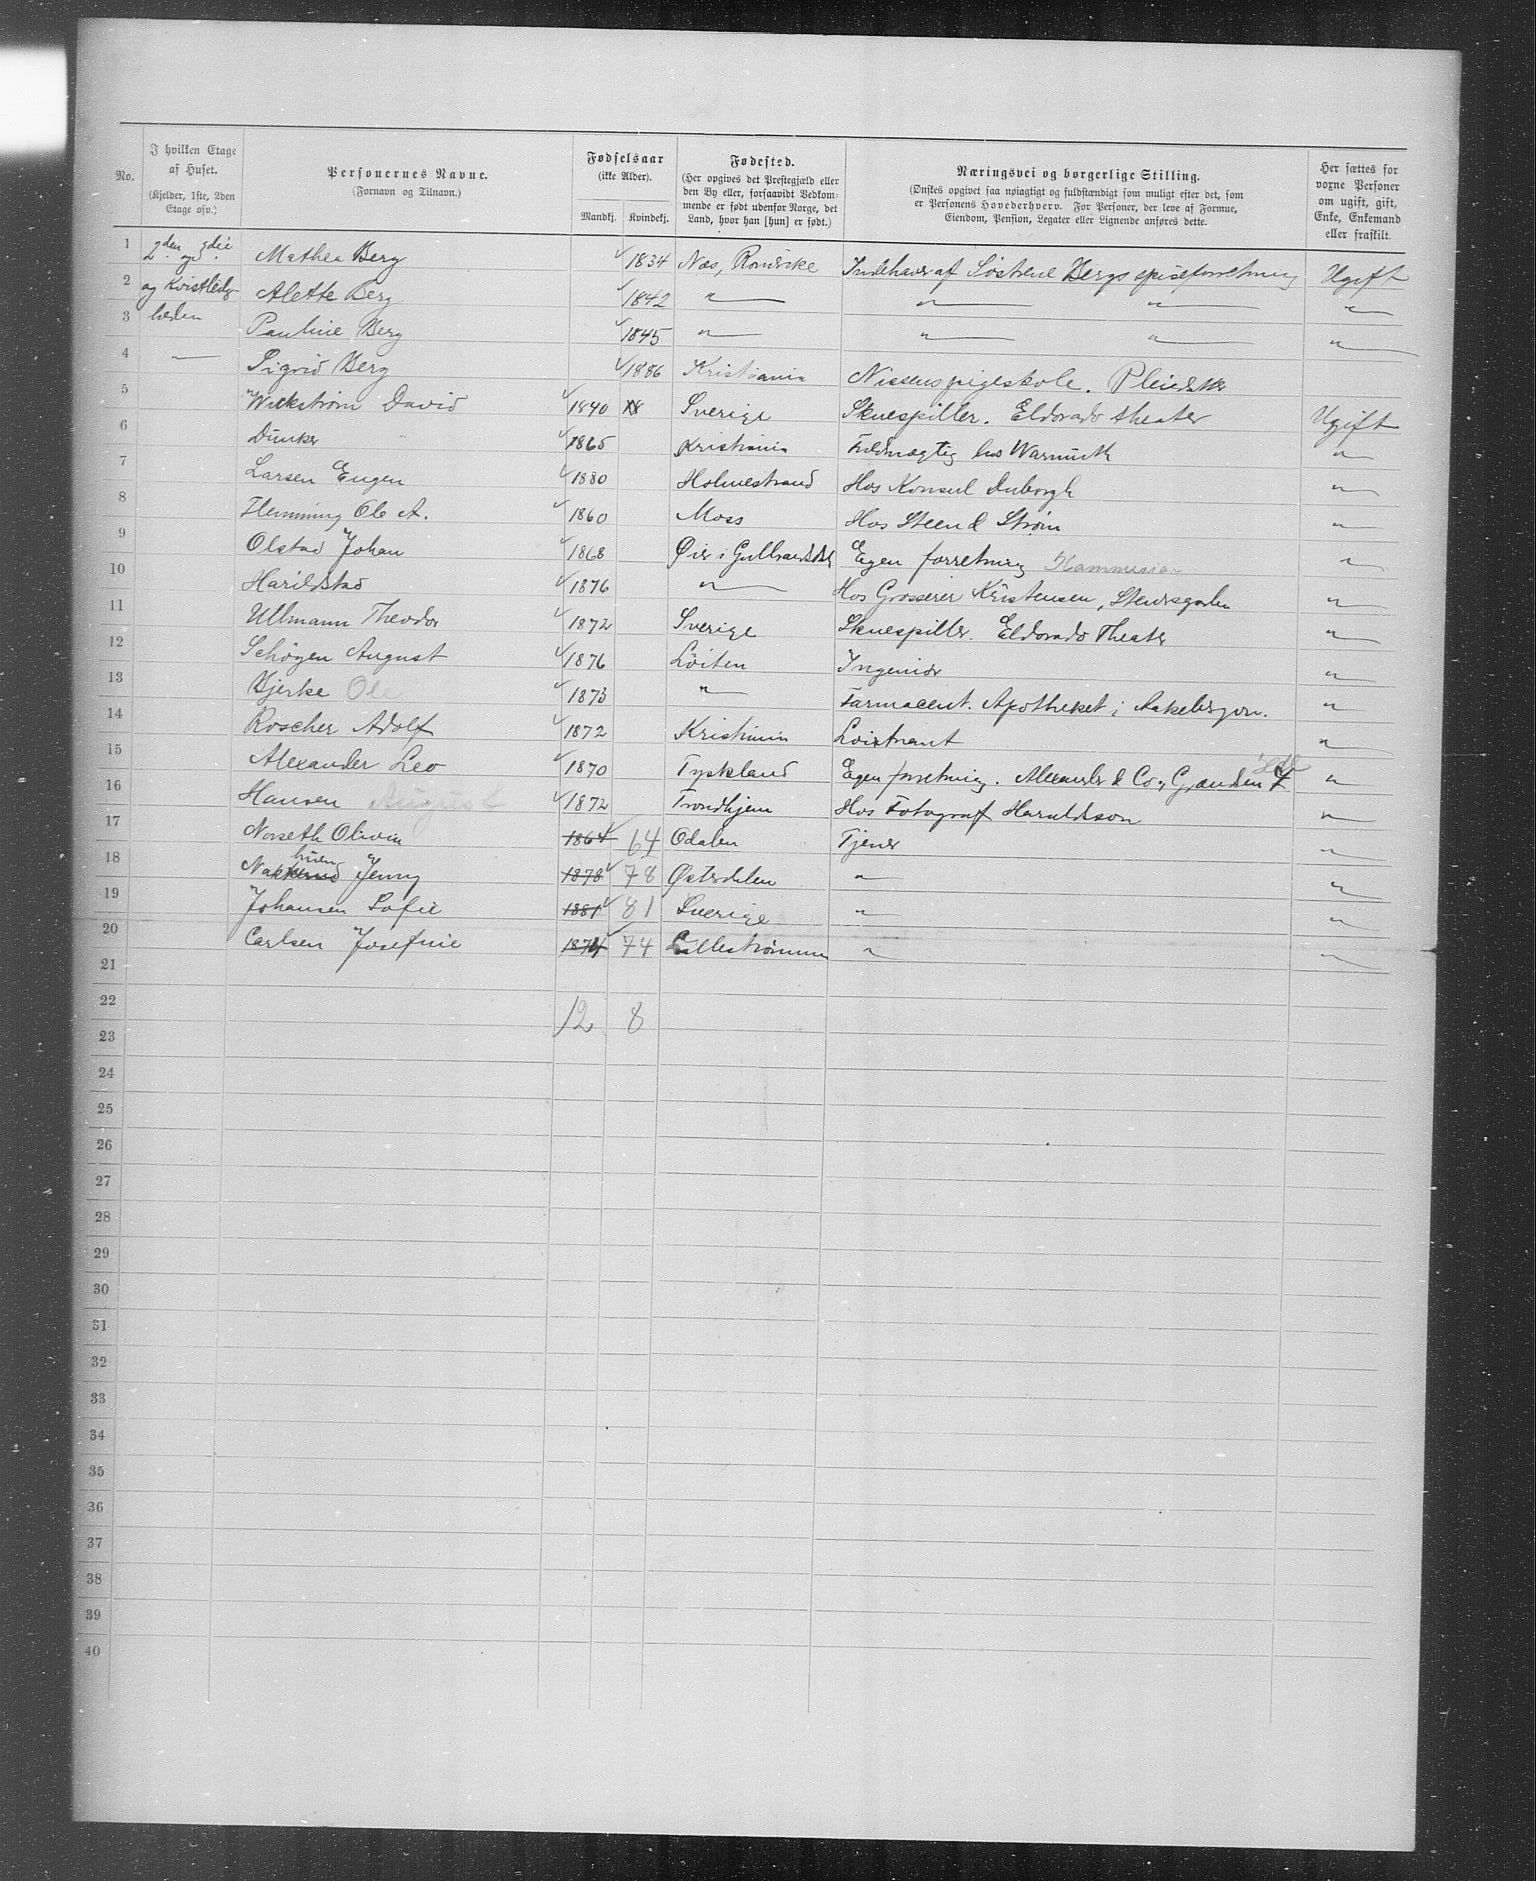 No.
I hvilken Etage af Huset.
(Kjelder, 1ste, 2den Etage osv.)
Personernes Navne.
(Fornavn og Tilnavn.)
Fødselsaar
(ikke Alder).
Mandkj. Kvindekj.
Fødested.
(Her opgives det Prestegjæld eller
den By eller, forsaavidt Vedkom-
mende er født udenfor Norge, det
Land, hvor han [hun] er født.)
Næringsvei og borgerlige Stilling.
(Ønskes opgivet saa nøiagtig og fuldstændigt som muligt efter det, som
er Personens Hovederhverv. For Personer, der leve af Formue,
Eiendom, Pension, Legater eller Lignende anføres dette.
Her sættes for
voxne Personer
om ugift, gift,
Enke, Enkemand
eller fraskilt.
1 2den og 3die Mathea Berg 1834 Næs, Romerike Indehaver af Søstrene Bergs spiseforretning Ugift
2 og Kvistleilig- Alette Berg 1842 " " " "
3 heden Pauline Berg 1845 " " " "
4 " Sigrid Berg 1886 Kristiania Nissens pigeskole.
5 Wickstrøm David 1840 Sverige Skuespiller. Eldorado theater Ugift
6 Dunker 1865 Kristiania Fuldmægtig hos Warmuth "
7 Larsen Eugen 1880 Holmestrand Hos Konsul Duborgh "
8 Flemming Ole A. 1860 Moss Hos Steen & Strøm "
9 Olstad Johan 1868 Øier i Gulbrandsdal Egen forretning "
10 Harildstad 1876 " Hos Grosserer Kristensen, Stenersgaden "
11 Ullmann Theodor 1872 Sverige Skuespiller. Eldorado Theater "
12 Schøyen August 1876 Løiten Ingeniør "
13 Bjerke Ole 1873 " Farmaceut. Apotheket i Aakebergvn. "
14 Roscher Adolf 1872 Kristiania Løitnant "
15 Alexander Leo 1870 Tyskland Egen forretning. Alexander & Co., Grændsen "
16 Hansen August 1872 Trondhjem Hos Fotograf Haraldson "
17 Norseth Olivia 1864 64 Odalen Tjener "
18 Jenny 1878 78 Østerdalen " "
19 Johansen Sofie 1881 81 Sverige " "
20 Carlsen Josefine 1874 74 Lillestrømmen " "
21
22 12 8
23
24
25
26
27
28
29
30
31
32
33
34
35
36
37
38
39
40